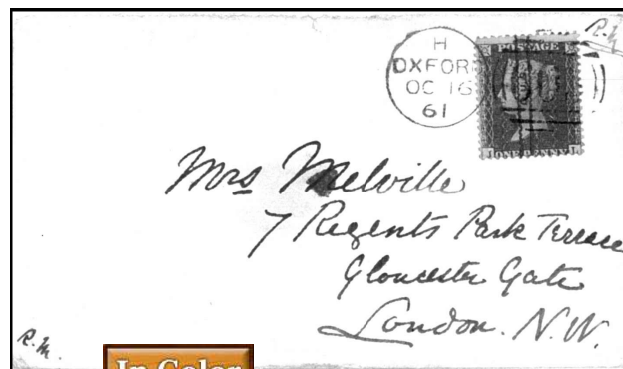 H
OXFORD
OC 16
61
POSTAGE
ONE PENNY
Mrs Melville
7 Regents Park Terrace
Gloucester Gate
London. N.W.
R.M.
In Color